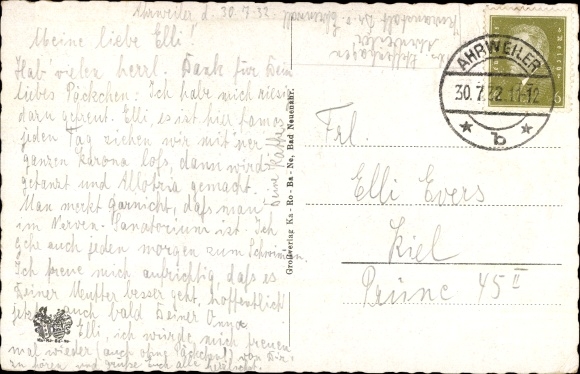 Ahrweiler d. 30.7.32.
Meine liebe Elli!
Hab' vielen herzl. Dank für Dein
liebes Päckchen. Ich habe mich riesig
daru gefreut. Elli, es ist hier famos
jeden Tag ziehen wir mit 'ner
ganzen Karona los, dann wird
getanzt und Allotria gemacht.
Man merkt garnicht, dass man
im Nerven-Sanatorium ist. Ich
gehe auch jeden morgen zum Schwimmen.
Ich freue mich aufrichtig dass es
Deiner Mutter besser geht, hoffentlich
auch bald Deiner Oma
Elli, ich würde mich freuen
mal wieder (auch ohne Päckchen) von Dir
zu hören und grüße
Deine Käthe
Ahrweiler
Großverlag Ka-Ro-Ba-Ne, Bad Neuenahr.
Ka-Ro-Ba-Ne
AHRWEILER
30.7.32.11-12
b
6
Frl.
Elli Evers
Kiel
Prüne 45 II